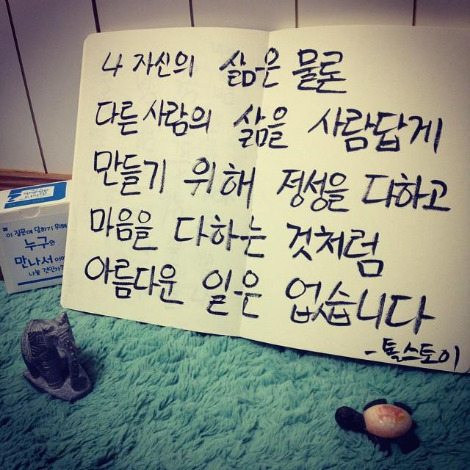 나 자신의 삶은 물론
다른 사람의 삶을 사람답게
만들기 위해 정성을 다하고
마음을 다하는 것처럼
아름다운 일은 없습니다
-톨스토이
이 질문에 답하기 위해
누구와
만나서